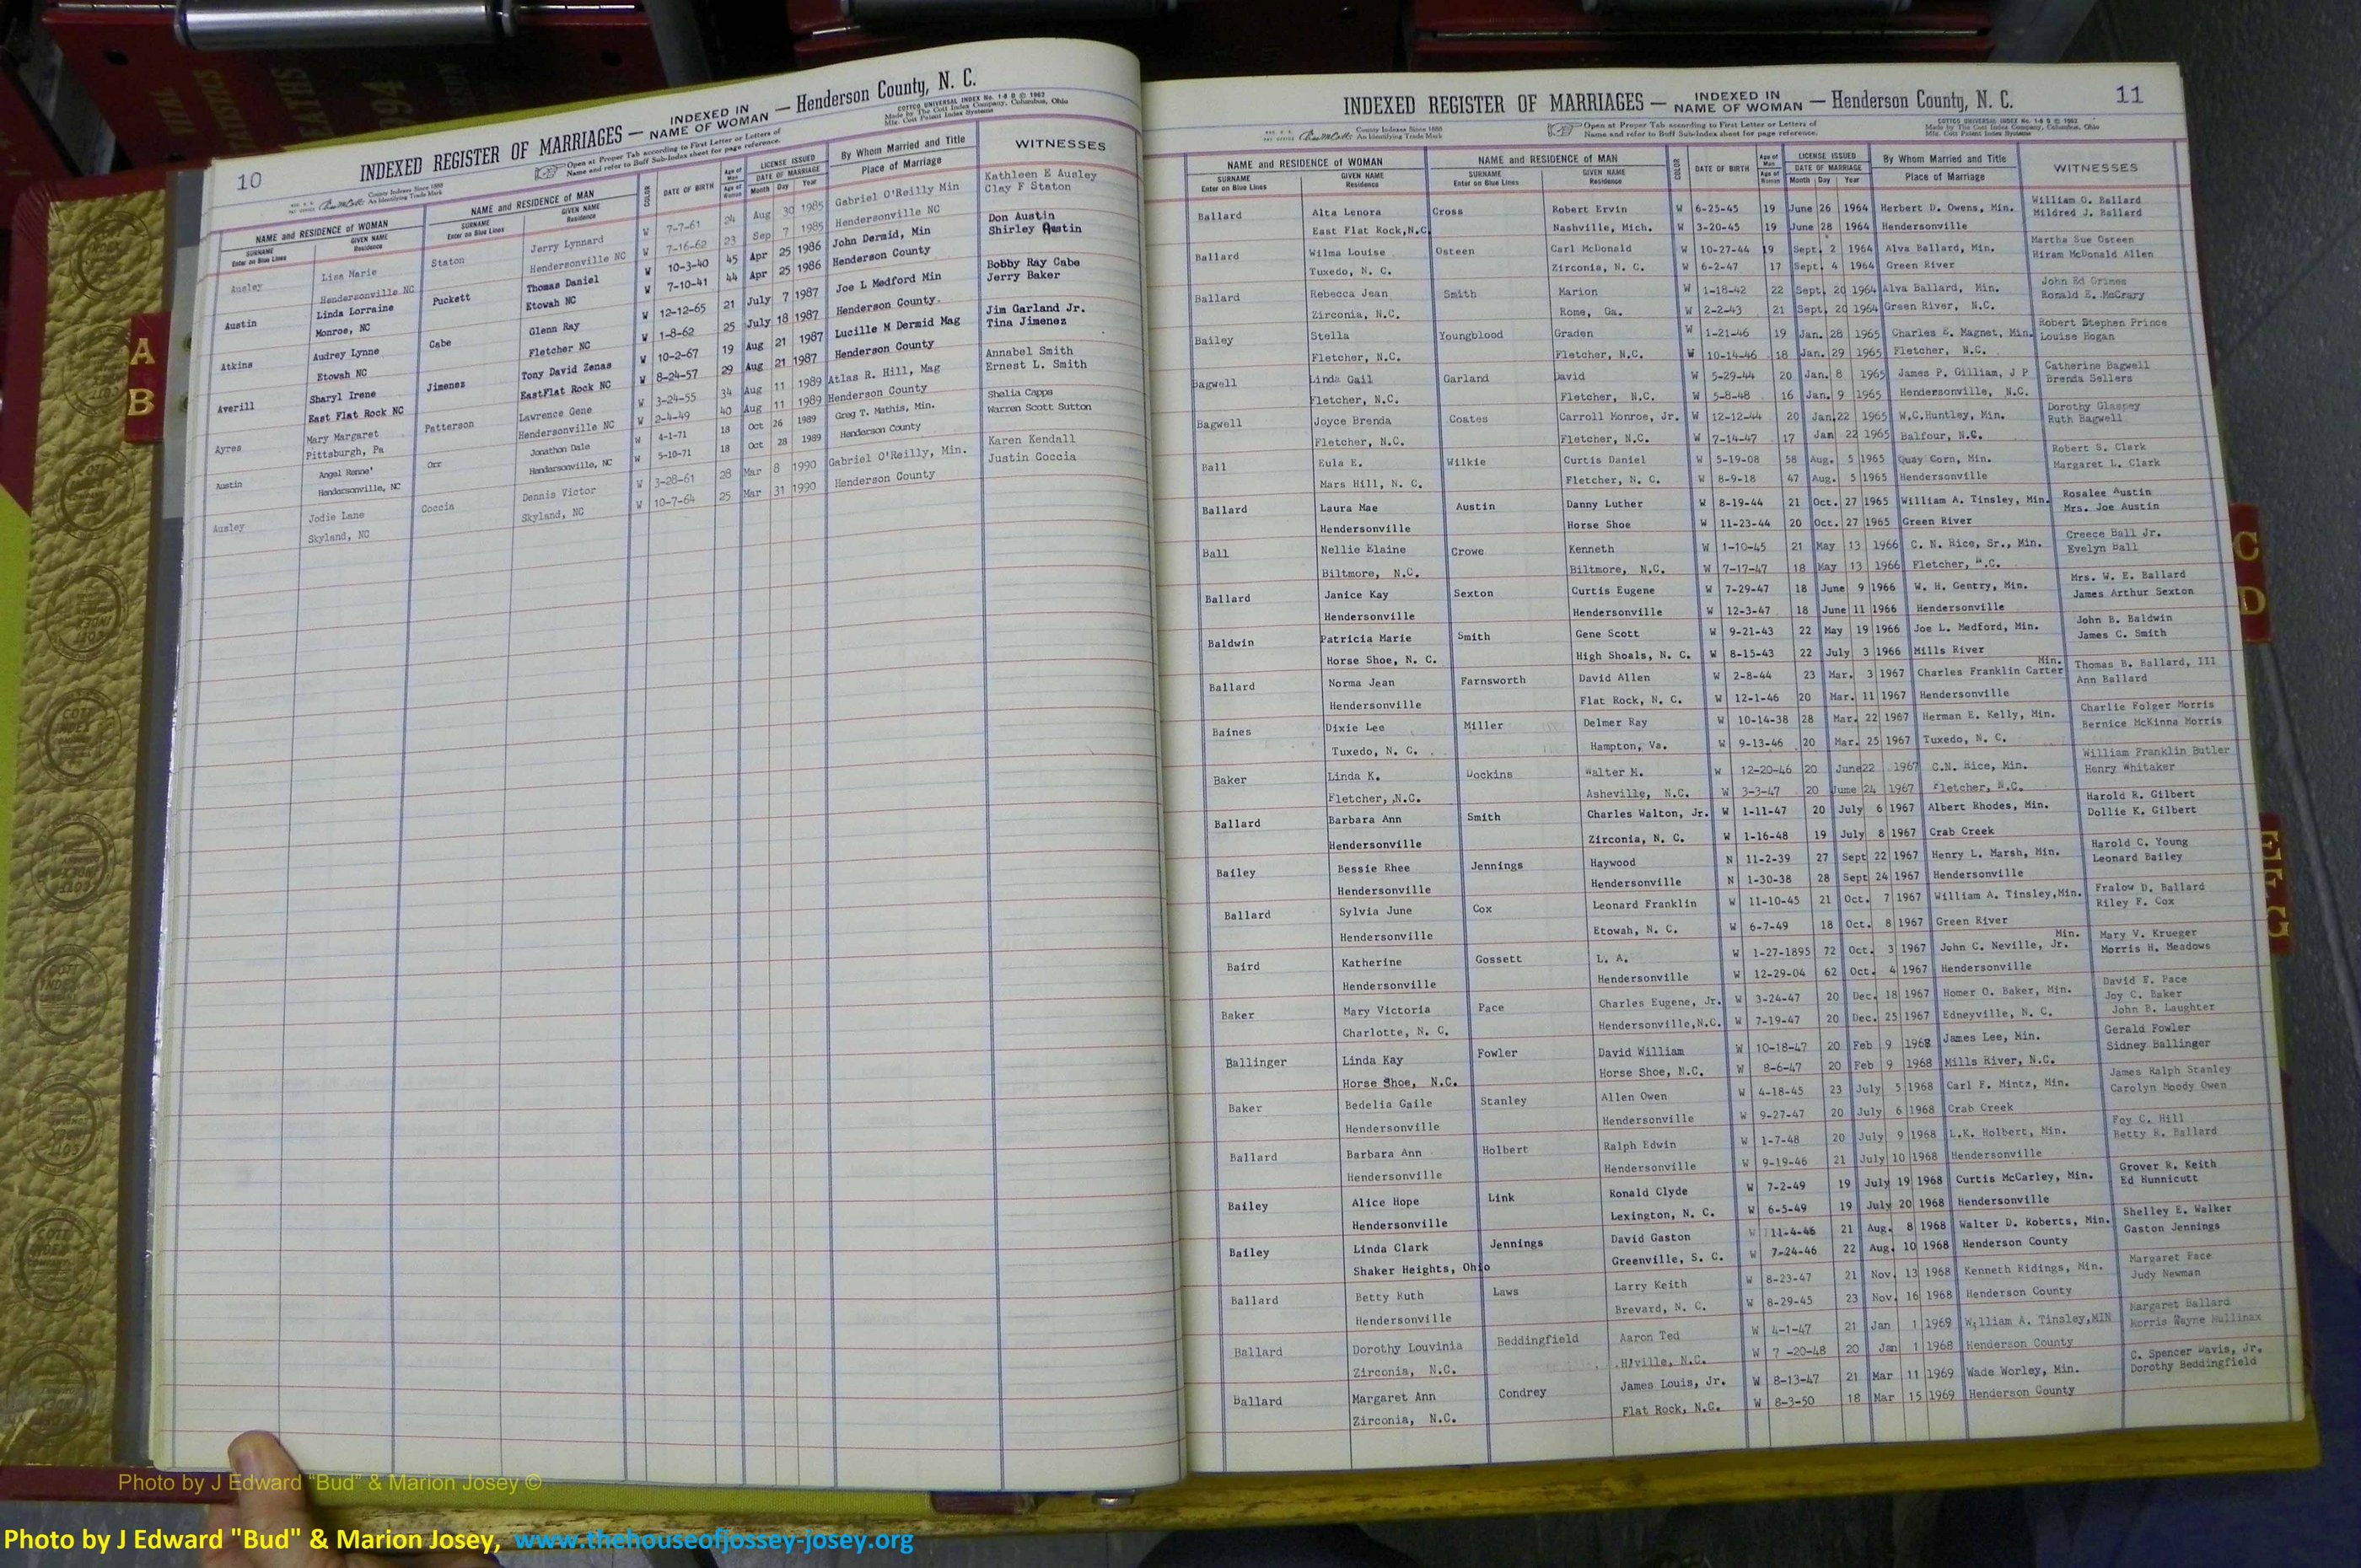 10
INDEXED REGISTER OF MARRIAGES — INDEXED IN NAME OF WOMAN — Henderson County, N. C.
County Indexes Since 1888
An Identifying Trade Mark
Open at Proper Tab according to First Letter or Letters of
Name and refer to Buff Sub-Index sheet for page reference.
COTTCO UNIVERSAL INDEX No. 1-8 D © 1962
Made by The Cott Index Company, Columbus, Ohio
Mfr. Cott Patent Index Systems
NAME and RESIDENCE OF WOMAN NAME and RESIDENCE OF MAN COLOR DATE OF BIRTH Age of Man LICENSE ISSUED By Whom Married and Title WITNESSES
SURNAME GIVEN NAME SURNAME GIVEN NAME Age of Woman DATE OF MARRIAGE Place of Marriage
Enter on Blue Lines Residence Enter on Blue Lines Residence Month Day Year
Ausley Lisa Marie Staton Jerry Lynnard W 7-7-61 24 Aug 30 1985 Gabriel O'Reilly Min Kathleen E Ausley
Hendersonville NC Hendersonville NC W 7-16-62 23 Sep 7 1985 Hendersonville NC Clay F Staton
Austin Linda Lorraine Puckett Thomas Daniel W 10-3-40 45 Apr 25 1986 John Dermid, Min Don Austin
Monroe, NC Etowah NC W 7-10-41 44 Apr 25 1986 Henderson County Shirley Austin
Atkins Audrey Lynne Cabe Glenn Ray W 12-12-65 21 July 7 1987 Joe L Medford Min Bobby Ray Cabe
Etowah NC Fletcher NC W 1-8-62 25 July 18 1987 Henderson County. Jerry Baker
Averill Sharyl Irene Jimenez Tony David Zenas W 10-2-67 19 Aug 21 1987 Lucille M Dermid Mag Jim Garland Jr.
East Flat Rock NC EastFlat Rock NC W 8-24-57 29 Aug 21 1987 Henderson County Tina Jimenez
Ayres Mary Margaret Patterson Lawrence Gene W 3-24-55 34 Aug 11 1989 Atlas R. Hill, Mag Annabel Smith
Pittsburgh, Pa Hendersonville NC W 2-4-49 40 Aug 11 1989 Henderson County Ernest L. Smith
Austin Angel Renne' Orr Jonathon Dale W 4-1-71 18 Oct 26 1989 Greg T. Mathis, Min. Shelia Capps
Hendersonville, NC Hendersonville, NC W 5-10-71 18 Oct 28 1989 Henderson County Warren Scott Sutton
Ausley Jodie Lane Coccia Dennis Victor W 3-28-61 28 Mar 8 1990 Gabriel O'Reilly, Min. Karen Kendall
Skyland, NC Skyland, NC W 10-7-64 25 Mar 31 1990 Henderson County Justin Coccia
11
INDEXED REGISTER OF MARRIAGES — INDEXED IN NAME OF WOMAN — Henderson County, N. C.
County Indexes Since 1888
An Identifying Trade Mark
Open at Proper Tab according to First Letter or Letters of
Name and refer to Buff Sub-Index sheet for page reference.
COTTCO UNIVERSAL INDEX No. 1-8 D © 1962
Made by The Cott Index Company, Columbus, Ohio
Mfr. Cott Patent Index Systems
NAME and RESIDENCE OF WOMAN NAME and RESIDENCE OF MAN COLOR DATE OF BIRTH Age of Man LICENSE ISSUED By Whom Married and Title WITNESSES
SURNAME GIVEN NAME SURNAME GIVEN NAME Age of Woman DATE OF MARRIAGE Place of Marriage
Enter on Blue Lines Residence Enter on Blue Lines Residence Month Day Year
Ballard Alta Lenora Cross Robert Ervin W 6-25-45 19 June 26 1964 Herbert D. Owens, Min. William O. Ballard
East Flat Rock,N.C. Nashville, Mich. W 3-20-45 19 June 28 1964 Hendersonville Mildred J. Ballard
Ballard Wilma Louise Osteen Carl McDonald W 10-27-44 19 Sept. 2 1964 Alva Ballard, Min. Martha Sue Osteen
Tuxedo, N. C. Zirconia, N. C. W 6-2-47 17 Sept. 4 1964 Green River Hiram McDonald Allen
Ballard Rebecca Jean Smith Marion W 1-18-42 22 Sept. 20 1964 Alva Ballard, Min. John Ed Grimes
Zirconia, N.C. Rome, Ga. W 2-2-43 21 Sept. 20 1964 Green River, N.C. Ronald E. McCrary
Bailey Stella Youngblood Graden W 1-21-46 19 Jan. 28 1965 Charles E. Magnet, Min. Robert Stephen Prince
Fletcher, N.C. Fletcher, N.C. W 10-14-46 18 Jan. 29 1965 Fletcher, N.C. Louise Hogan
Bagwell Linda Gail Garland David W 5-29-44 20 Jan. 8 1965 James P. Gilliam, J P Catherine Bagwell
Fletcher, N.C. Fletcher, N.C. W 5-8-48 16 Jan. 9 1965 Hendersonville, N.C. Brenda Sellers
Bagwell Joyce Brenda Coates Carroll Monroe, Jr. W 12-12-44 20 Jan.22 1965 W.C.Huntley, Min. Dorothy Glaspey
Fletcher, N.C. Fletcher, N.C. W 7-14-47 17 Jan 22 1965 Balfour, N.C. Ruth Bagwell
Ball Eula E. Wilkie Curtis Daniel W 5-19-08 58 Aug. 5 1965 Quay Corn, Min. Robert S. Clark
Mars Hill, N. C. Fletcher, N. C. W 8-9-18 47 Aug. 5 1965 Hendersonville Margaret L. Clark
Ballard Laura Mae Austin Danny Luther W 8-19-44 21 Oct. 27 1965 William A. Tinsley, Min. Rosalee Austin
Hendersonville Horse Shoe W 11-23-44 20 Oct. 27 1965 Green River Mrs. Joe Austin
Ball Nellie Elaine Crowe Kenneth W 1-10-45 21 May 13 1966 C. N. Rice, Sr., Min. Creece Ball Jr.
Biltmore, N.C. Biltmore, N.C. W 7-17-47 18 May 13 1966 Fletcher, N.C. Evelyn Ball
Ballard Janice Kay Sexton Curtis Eugene W 7-29-47 18 June 9 1966 W. H. Gentry, Min. Mrs. W. E. Ballard
Hendersonville Hendersonville W 12-3-47 18 June 11 1966 Hendersonville James Arthur Sexton
Baldwin Patricia Marie Smith Gene Scott W 9-21-43 22 May 19 1966 Joe L. Medford, Min. John B. Baldwin
Horse Shoe, N. C. High Shoals, N. C. W 8-15-43 22 July 3 1966 Mills River James C. Smith
Ballard Norma Jean Farnsworth David Allen W 2-8-44 23 Mar. 3 1967 Charles Franklin Carter Min. Thomas B. Ballard, III
Hendersonville Flat Rock, N. C. W 12-1-46 20 Mar. 11 1967 Hendersonville Ann Ballard
Baines Dixie Lee Miller Delmer Ray W 10-14-38 28 Mar. 22 1967 Herman E. Kelly, Min. Charlie Folger Morris
Tuxedo, N. C. Hampton, Va. W 9-13-46 20 Mar. 25 1967 Tuxedo, N. C. Bernice McKinna Morris
Baker Linda K. Dockins Walter M. W 12-20-46 20 June22 1967 C.N. Rice, Min. William Franklin Butler
Fletcher, N.C. Asheville, N.C. W 3-3-47 20 June 24 1967 Fletcher, N.C. Henry Whitaker
Ballard Barbara Ann Smith Charles Walton, Jr. W 1-11-47 20 July 6 1967 Albert Rhodes, Min. Harold R. Gilbert
Hendersonville Zirconia, N. C. W 1-16-48 19 July 8 1967 Crab Creek Dollie K. Gilbert
Bailey Bessie Rhee Jennings Haywood N 11-2-39 27 Sept 22 1967 Henry L. Marsh, Min. Harold C. Young
Hendersonville Hendersonville N 1-30-38 28 Sept 24 1967 Hendersonville Leonard Bailey
Ballard Sylvia June Cox Leonard Franklin W 11-10-45 21 Oct. 7 1967 William A. Tinsley,Min. Fralow D. Ballard
Hendersonville Etowah, N. C. W 6-7-49 18 Oct. 8 1967 Green River Riley F. Cox
Baird Katherine Gossett L. A. W 1-27-1895 72 Oct. 3 1967 John C. Neville, Jr. Min. Mary V. Krueger
Hendersonville Hendersonville W 12-29-04 62 Oct. 4 1967 Hendersonville Morris H. Meadows
Baker Mary Victoria Pace Charles Eugene, Jr. W 3-24-47 20 Dec. 18 1967 Homer O. Baker, Min. David E. Pace
Joy C. Baker
Charlotte, N. C. Hendersonville,N.C. W 7-19-47 20 Dec. 25 1967 Edneyville, N. C. John B. Laughter
Ballinger Linda Kay Fowler David William W 10-18-47 20 Feb 9 1968 James Lee, Min. Gerald Fowler
Horse Shoe, N.C. Horse Shoe, N.C. W 8-6-47 20 Feb 9 1968 Mills River, N.C. Sidney Ballinger
Baker Bedelia Gaile Stanley Allen Owen W 4-18-45 23 July 5 1968 Carl F. Mintz, Min. James Ralph Stanley
Hendersonville Hendersonville W 9-27-47 20 July 6 1968 Crab Creek Carolyn Moody Owen
Ballard Barbara Ann Holbert Ralph Edwin W 1-7-48 20 July 9 1968 L.K. Holbert, Min. Foy C. Hill
Hendersonville Hendersonville W 9-19-46 21 July 10 1968 Hendersonville Betty R. Ballard
Bailey Alice Hope Link Ronald Clyde W 7-2-49 19 July 19 1968 Curtis McCarley, Min. Grover R. Keith
Hendersonville Lexington, N. C. W 6-5-49 19 July 20 1968 Hendersonville Ed Hunnicutt
Bailey Linda Clark Jennings David Gaston W 11-4-46 21 Aug. 8 1968 Walter D. Roberts, Min. Shelley E. Walker
Shaker Heights, Ohio Greenville, S. C. W 7-24-46 22 Aug. 10 1968 Henderson County Gaston Jennings
Ballard Betty Ruth Laws Larry Keith W 8-23-47 21 Nov. 13 1968 Kenneth Ridings, Min. Margaret Pace
Hendersonville Brevard, N. C. W 8-29-45 23 Nov. 16 1968 Henderson County Judy Newman
Ballard Dorothy Louvinia Beddingfield Aaron Ted W 4-1-47 21 Jan 1 1969 William A. Tinsley,MIN Margaret Ballard
Zirconia, N.C. H'ville, N.C. W 7 -20-48 20 Jan 1 1968 Henderson County Morris Wayne Mullinax
Ballard Margaret Ann Condrey James Louis, Jr. W 8-13-47 21 Mar 11 1969 Wade Worley, Min. C. Spencer Davis, Jr.
Zirconia, N.C. Flat Rock, N.C. W 8-3-50 18 Mar 15 1969 Henderson County Dorothy Beddingfield
A
B
C
D
E
F
G
Photo by J Edward "Bud" & Marion Josey ©
Photo by J Edward "Bud" & Marion Josey, www.thehouseofjossey-josey.org